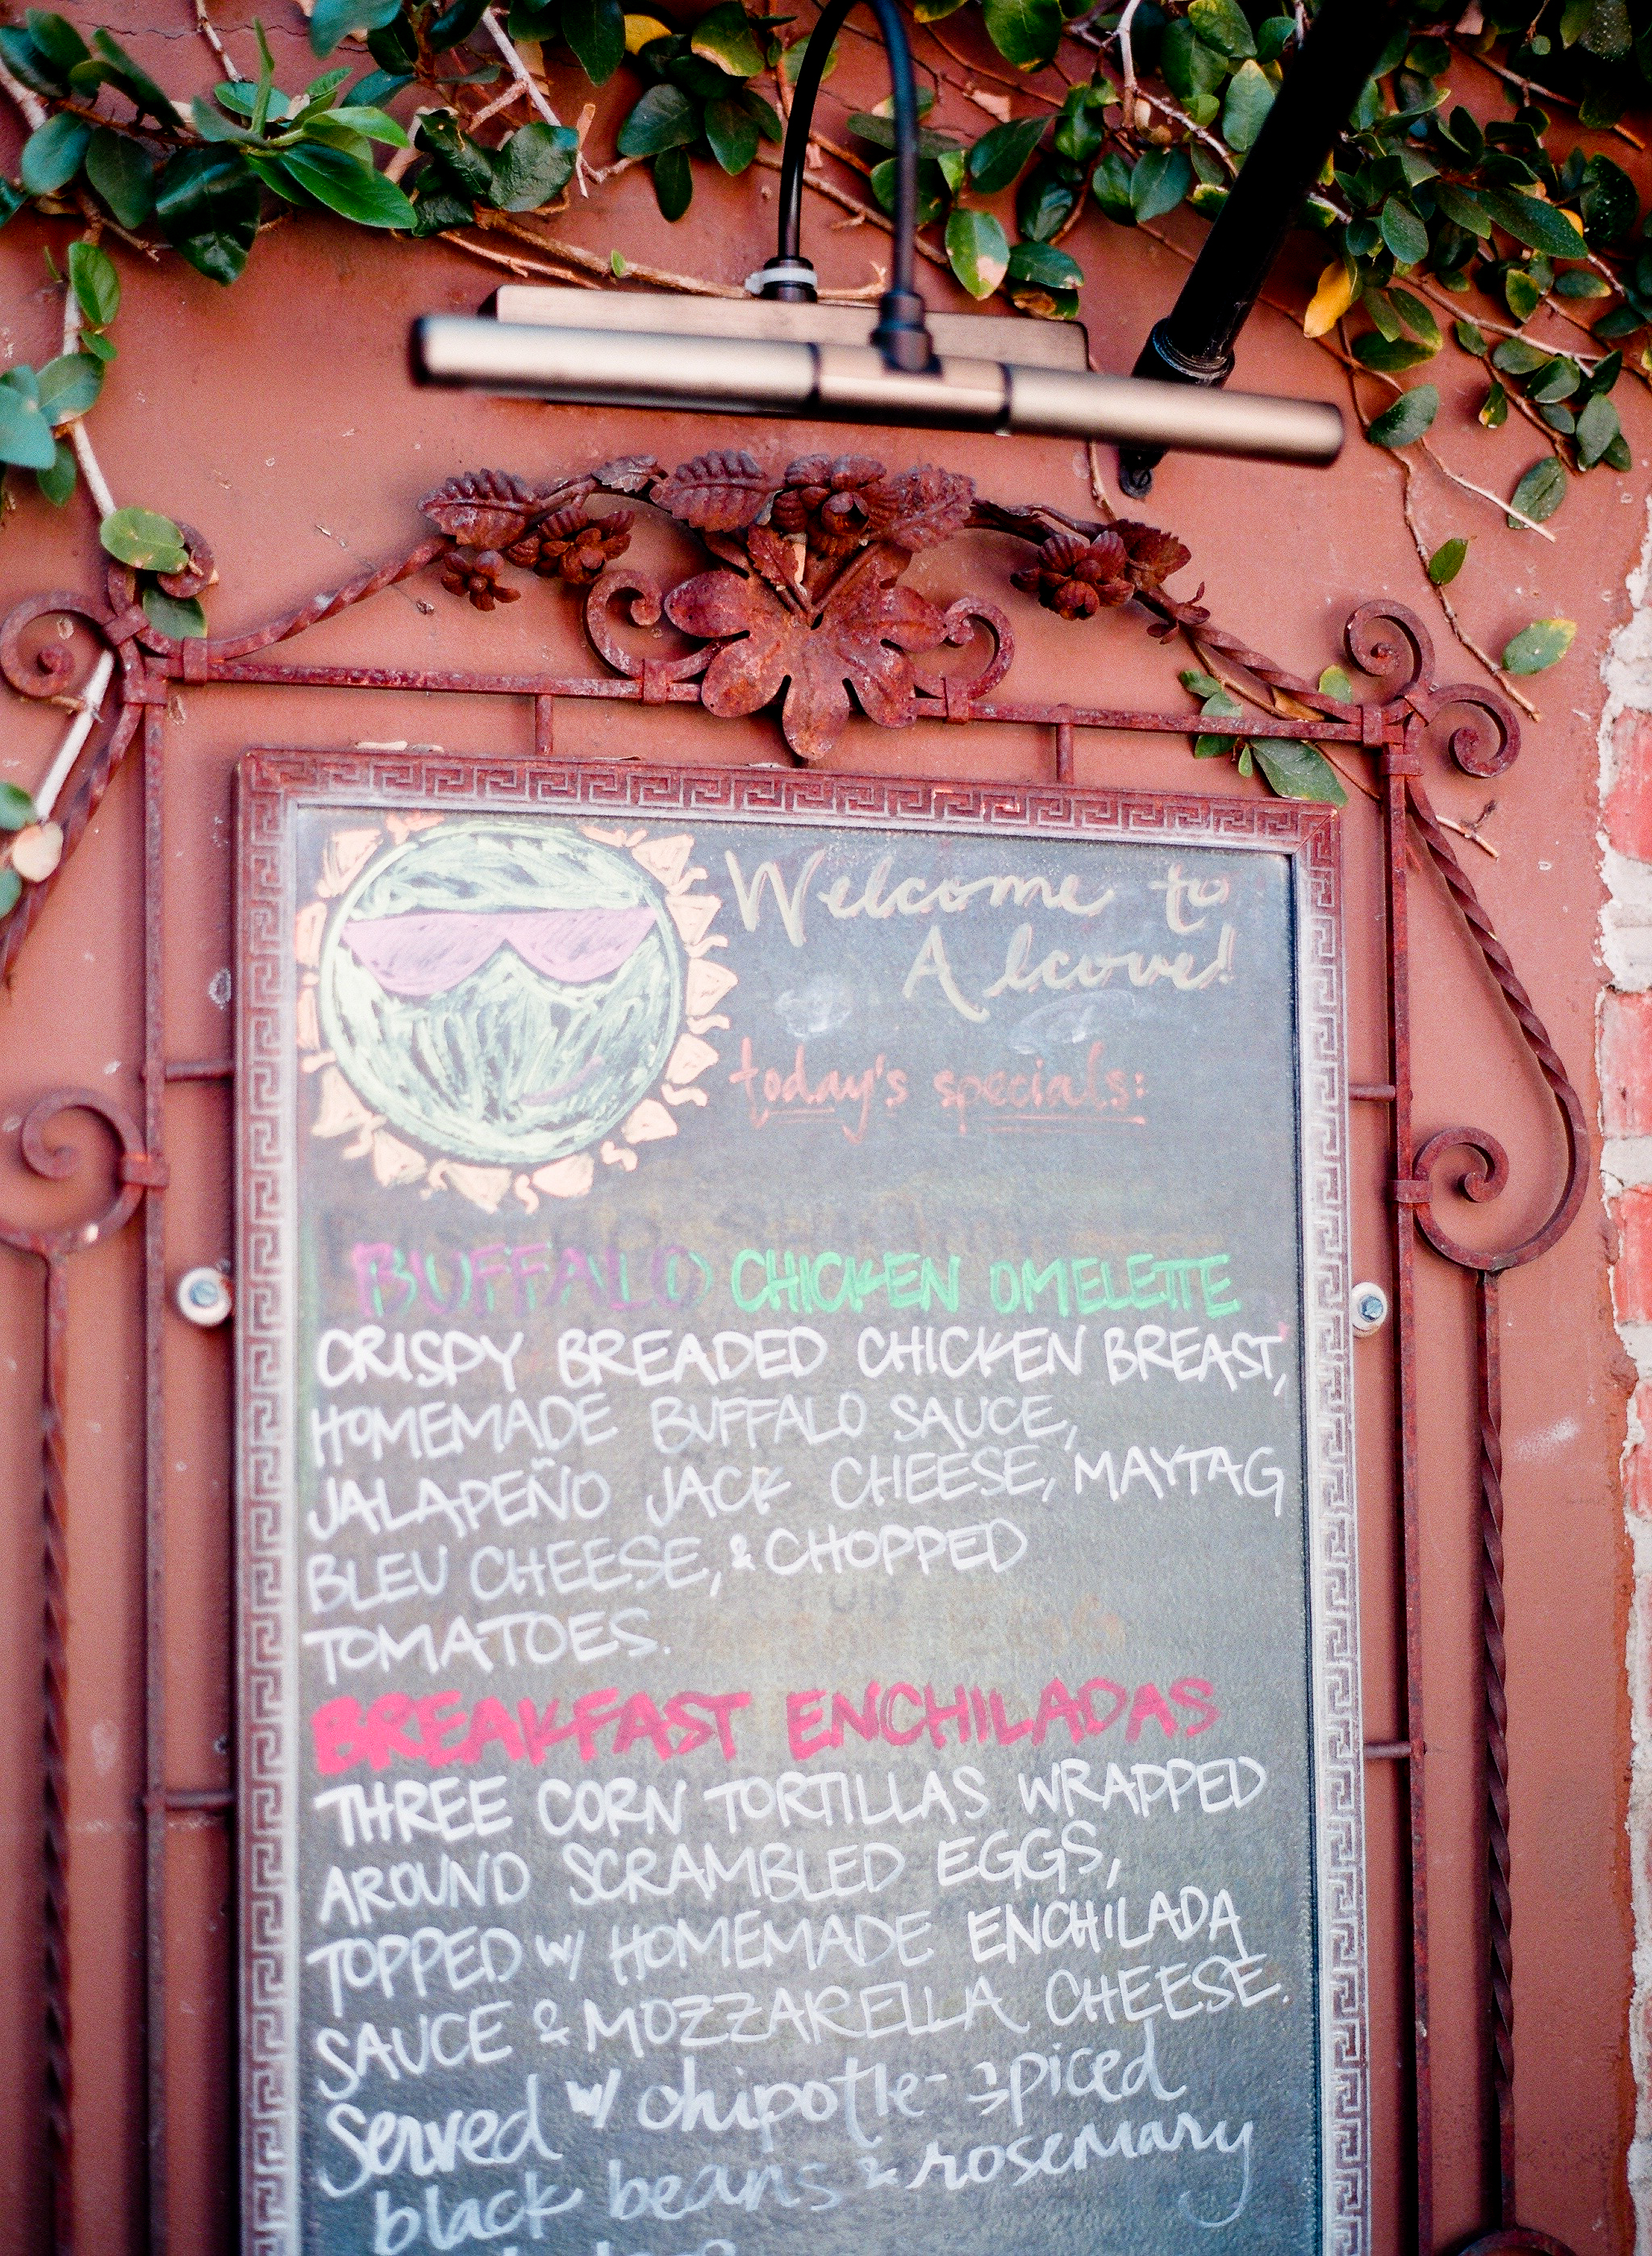 Welcome to
Alcove!
today's specials:
BUFFALO CHICKEN OMELETTE
CRISPY BREADED CHICKEN BREAST,
HOMEMADE BUFFALO SAUCE,
JALAPEÑO JACK CHEESE, MAYTAG
BLEU CHEESE, & CHOPPED
TOMATOES.
BREAKFAST ENCHILADAS
THREE CORN TORTILLAS WRAPPED
AROUND SCRAMBLED EGGS,
TOPPED W/ HOMEMADE ENCHILADA
SAUCE & MOZZARELLA CHEESE.
Served w/ chipotle-spiced
black beans & rosemary